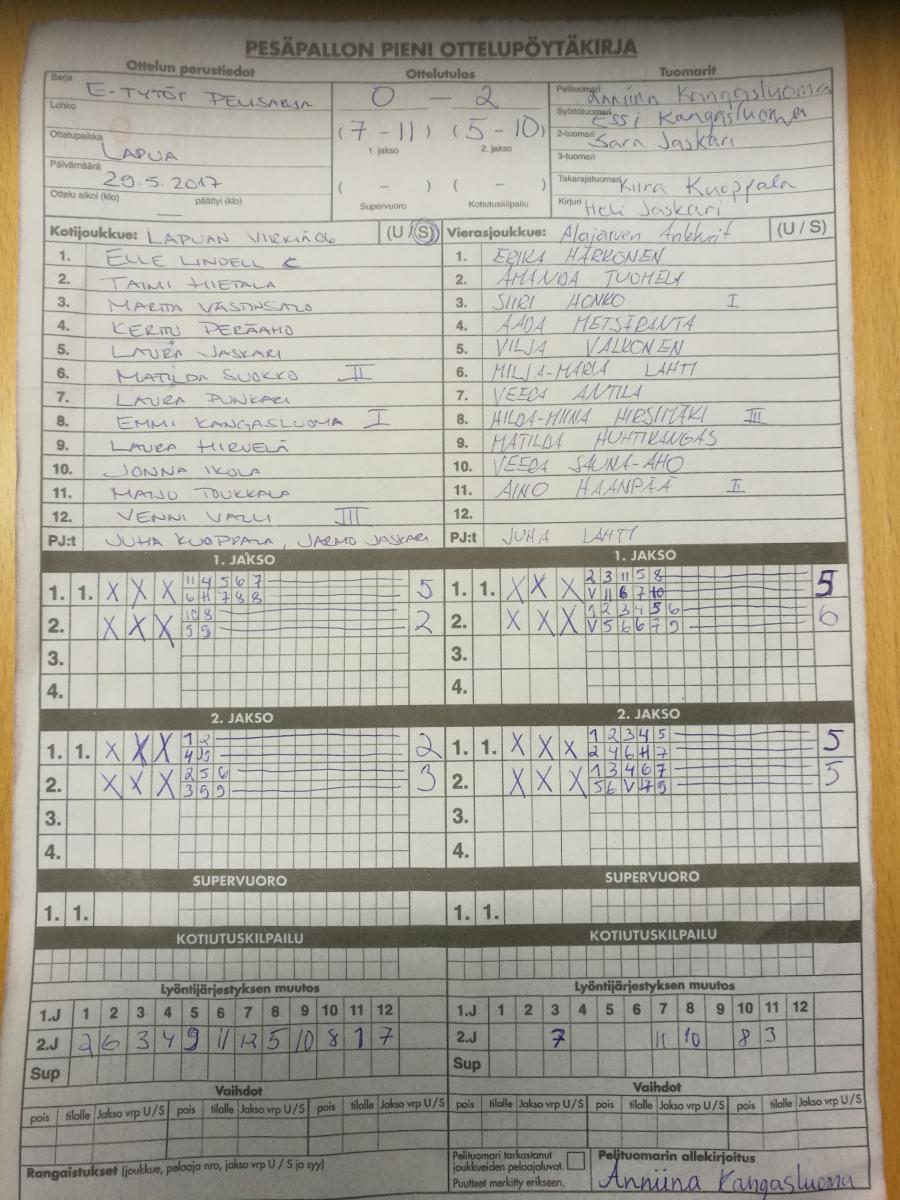 PESÄPALLON PIENI OTTELUPÖYTÄKIRJA
Ottelun perustiedot Ottelutulos Tuomarit
Sarja E-TYTÖT PELISARJA
Lohko
Ottelupaikka LAPUA
Päivämäärä 29.5.2017
Ottelu alkoi (klo) — päättyi (klo)
0 — 2
(7-11) (5-10)
1. jakso 2. jakso
( - ) ( - )
Supervuoro Kotiutuskilpailu
Pelituomari Anniina Kangasluoma
Syöttötuomari Essi Kangasluoma
2-tuomari Sara Jaskari
3-tuomari
Takarajatuomari Kiira Kuoppala
Kirjuri Heli Jaskari
Kotijoukkue: LAPUAN VIRKIÄ 06 (U / S) Vierasjoukkue: Alajärven Ankkurit (U / S)
1. ELLE LINDELL C 1. ERIKA HÄRKÖNEN
2. TAIMI HIETALA 2. AMANDA TUOMELA
3. 3. SIIRI HONKO I
4. KERTTU PERÄAHO 4. AADA METSÄRANTA
5. LAURA JASKARI 5. VILJA VALKONEN
6. MATILDA SUOKKO II 6. MILJA-MARIA LAHTI
7. LAURA PUNKARI 7. VEERA ANTILA
8. EMMI KANGASLUOMA I 8. HILDA-MIINA HIRSIMÄKI III
9. LAURA HIRVELÄ 9. MATILDA HUHTIKANGAS
10. JONNA IKOLA 10. VEERA SAUNA-AHO
11. MAIJU TOUKKALA 11. AINO HAANPÄÄ II
12. VENNI VALLI III 12.
PJ:t JUHA KUOPPALA, JARMO JASKARI PJ:t JUHA LAHTI
1. JAKSO 1. JAKSO
1. 1. X X X 11 4 5 6 7 5 1. 1. X X X 2 3 11 5 8 5
6 H 7 8 8 V 11 6 7 10
2. X X X 10 8 2 2. X X X 1 2 3 4 5 6 6
5 9 V 5 6 6 7 9
3. 3.
4. 4.
2. JAKSO 2. JAKSO
1. 1. X X X 1 2 2 1. 1. X X X 1 2 3 4 5 5
4 5 2 4 6 H 7
2. X X X 2 5 6 3 2. X X X 1 3 4 6 7 5
3 5 9 5 6 V 7 9
3. 3.
4. 4.
SUPERVUORO SUPERVUORO
1. 1. 1. 1.
KOTIUTUSKILPAILU KOTIUTUSKILPAILU
Lyöntijärjestyksen muutos Lyöntijärjestyksen muutos
1.J 1 2 3 4 5 6 7 8 9 10 11 12 1.J 1 2 3 4 5 6 7 8 9 10 11 12
2.J 2 6 3 4 9 11 12 5 10 8 1 7 2.J 7 11 10 8 3
Sup Sup
Vaihdot Vaihdot
pois tilalle Jakso vrp U/S pois tilalle Jakso vrp U/S pois tilalle Jakso vrp U/S pois tilalle Jakso vrp U/S pois tilalle Jakso vrp U/S pois tilalle Jakso vrp U/S
Rangaistukset (joukkue, pelaaja nro, jakso vrp U / S ja syy)
Pelituomari tarkastanut
joukkueiden pelaajaluvat.
Puutteet merkitty erikseen.
Pelituomarin allekirjoitus
Anniina Kangasluoma